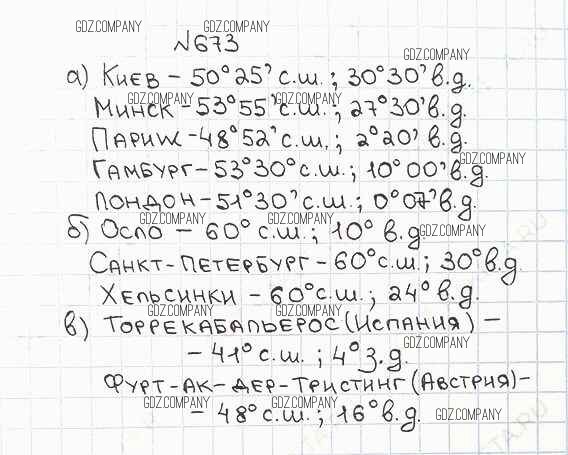 GDZ.COMPANY GDZ.COMPANY
№673
GDZ.COMPANY
а) Киев – 50°25' с.ш.; 30°30' в.д.
GDZ.COMPANY GDZ.COMPANY
Минск – 53°55' с.ш.; 27°30' в.д.
Париж – 48°52' с.ш.; 2°20' в.д.
GDZ.COMPANY
Гамбург – 53°30° с.ш.; 10°00' в.д.
Лондон – 51°30' с.ш.; 0°07' в.д.
GDZ.COMPANY GDZ.COMPANY GDZ.COMPANY
б) Осло – 60° с.ш.; 10° в.д.
Санкт-Петербург – 60° с.ш.; 30° в.д.
Хельсинки – 60° с.ш.; 24° в.д.
GDZ.COMPANY GDZ.COMPANY
в) Торрекабальерос (Испания) –
GDZ.COMPANY
– 41° с.ш.; 4° з.д.
Фурт-ак-дер-Тристинг (Австрия) –
GDZ.COMPANY GDZ.COMPANY GDZ.COMPANY
– 48° с.ш.; 16° в.д.